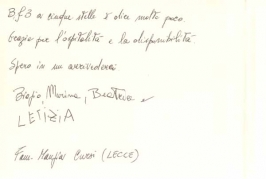 B&B a cinque stelle è dire molto poco.
Grazie per l'ospitalità e la disponibilità
Spero in un arrivederci
Biagio, Marina, Beatrice e
LETIZIA
Fam. Cursi (LECCE)